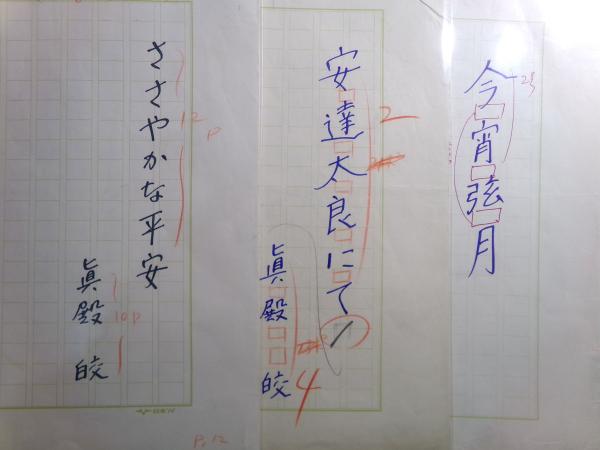 今宵弦月
安達太良にて
2
眞殿 皎
4
ささやかな平安
12
P
眞殿 皎
10P
P.12